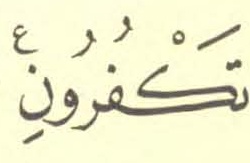 تَكْفُرُونِ ع